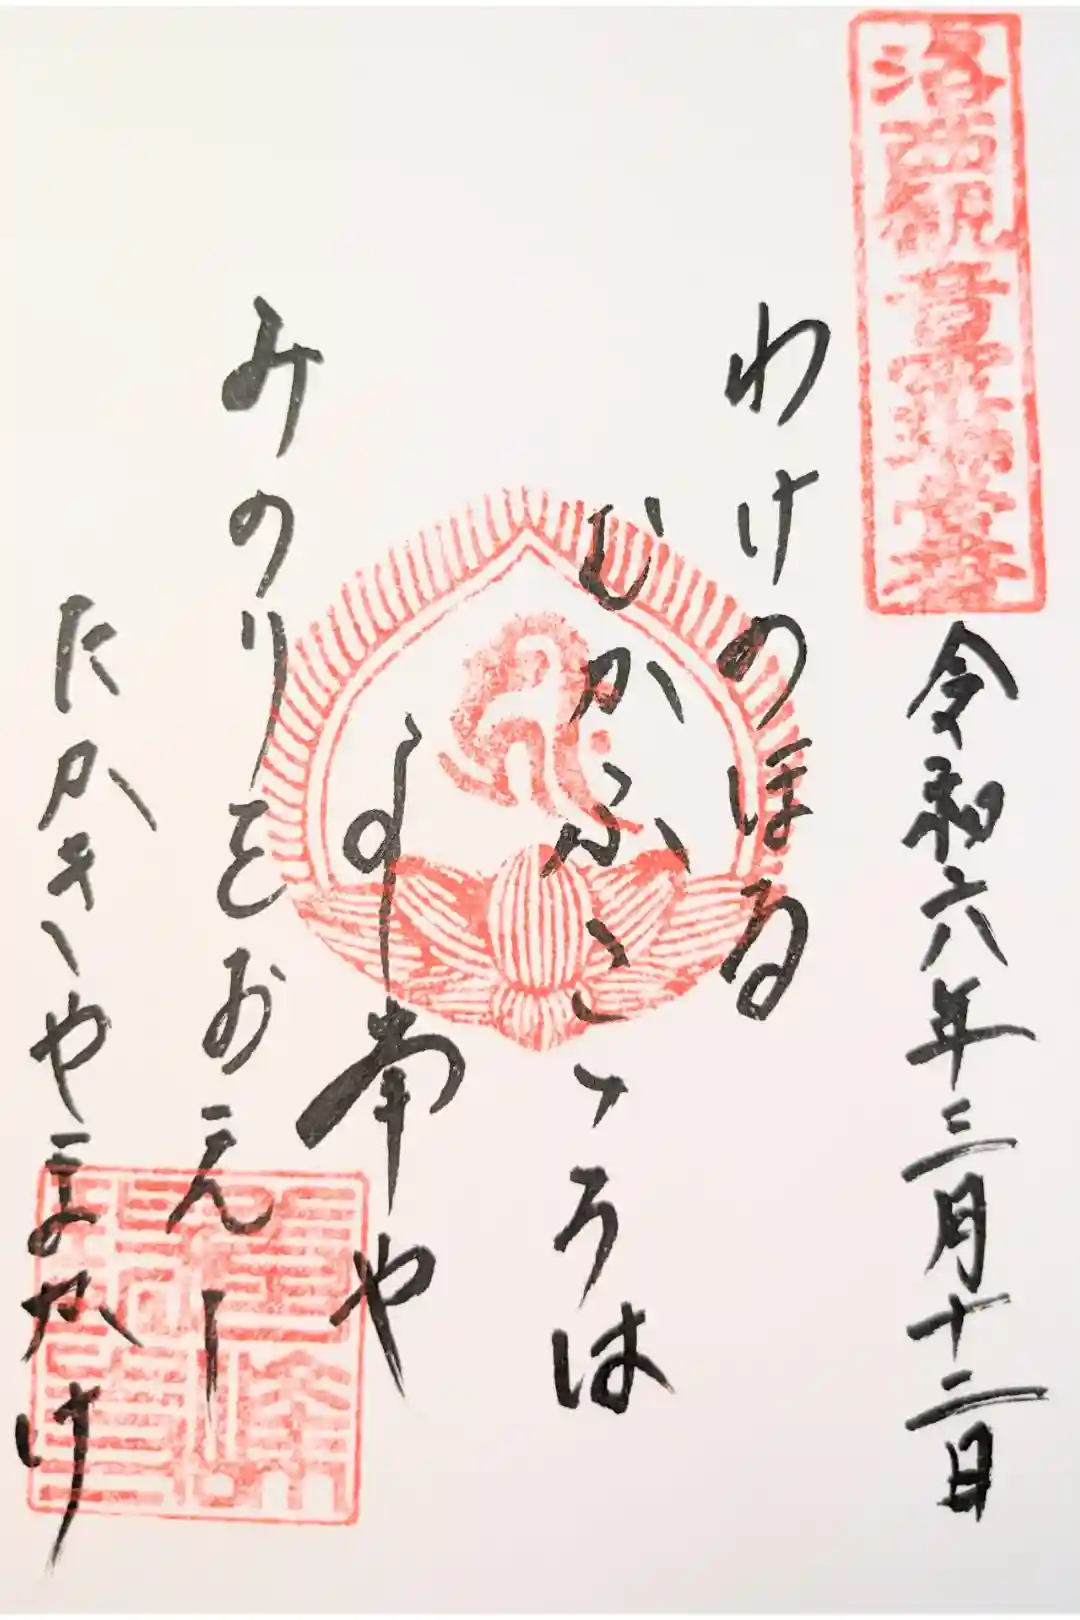 洛西観音霊場
令和六年三月十二日
わけのほる
むかふこゝろは
よし峯や
みのりをお
たかきやまかけ